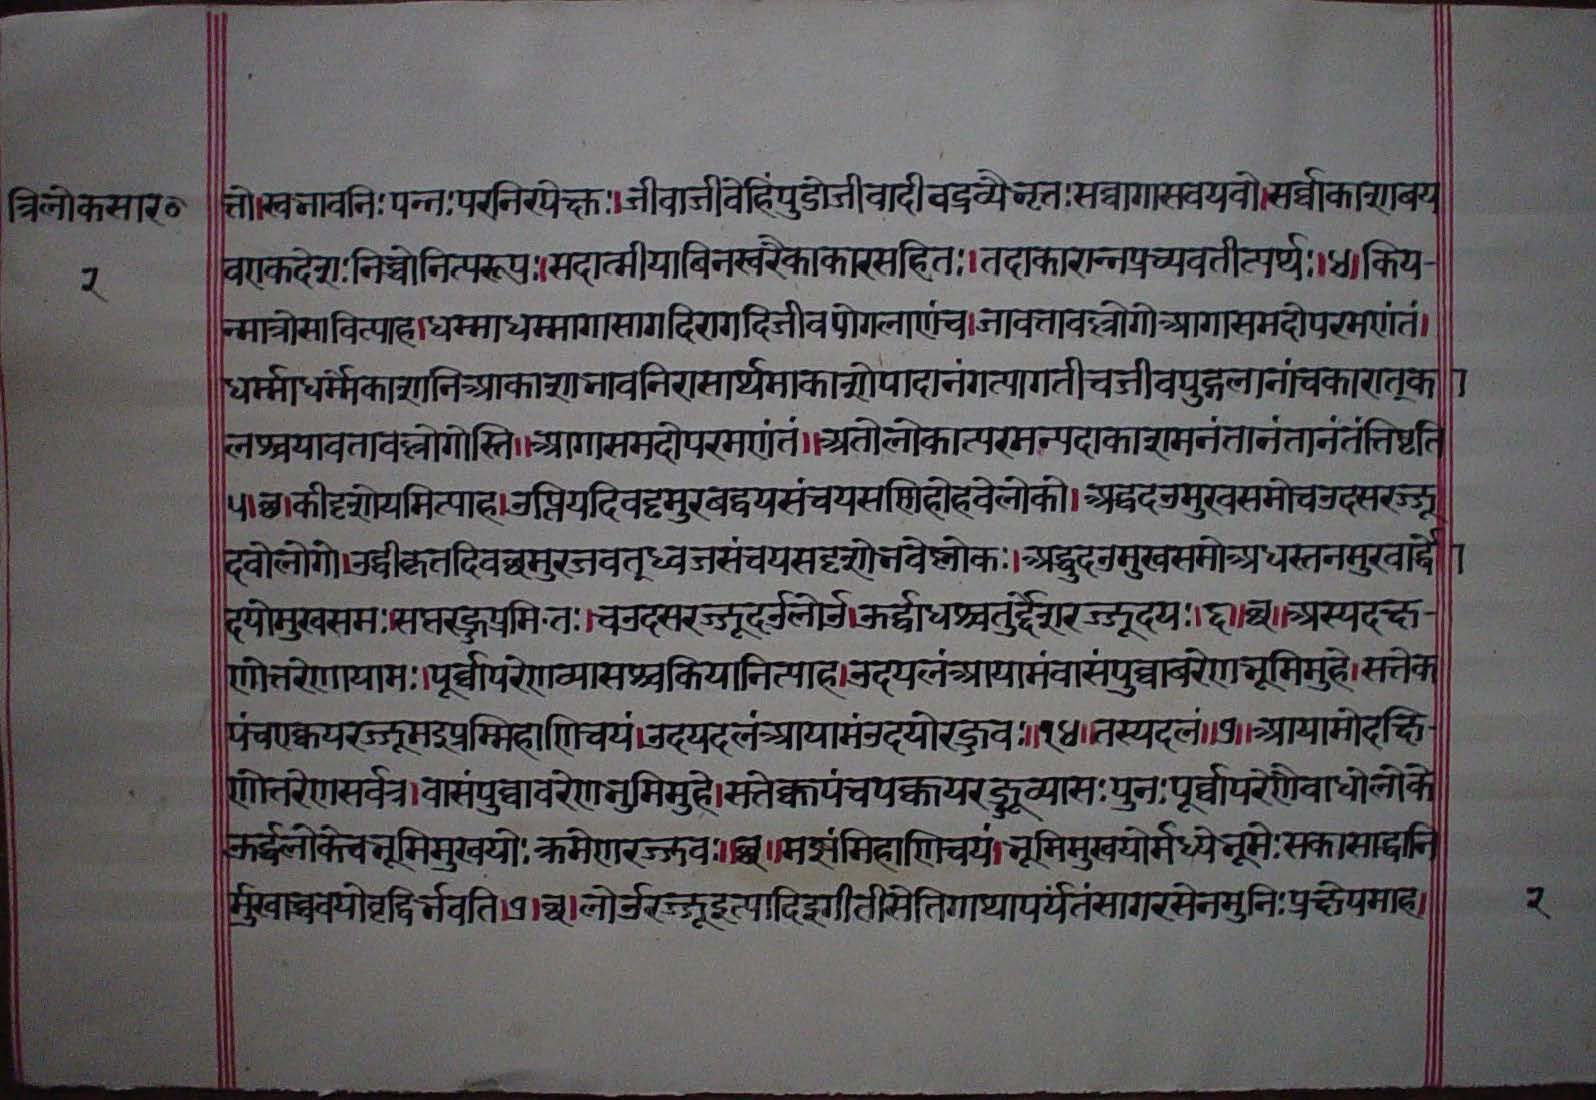 त्रिलोकसार०
२
त्तो।स्वभावनिःपन्नःपरनिरपेक्षः।जीवाजीवेहिंपुडोजीवादीवद्रव्यैःभृतःसव्वागासवयवो।सर्व्वाकाशावय
वएकदेशःनिच्चोनित्यरूपः।सदात्मीयाविनस्वरैकाकारसहितः।तदाकारान्नप्रच्यवतीत्यर्थः।४।किय-
न्मात्रोसावित्याह।धम्माधम्मागासागदिरागदिजीवपोगलाणंच।जावत्तावल्लोगोआगासमदोपरमणंतं।
धर्म्माधर्म्मकाशानिआकाशाभावनिरासार्थमाकाशोपादानंगत्यागतीचजीवपुद्गलानांचकारात्का
लश्चयावतावल्लोगोस्ति॥आगासमदोपरमणंतं॥अतोलोकात्परमन्यदाकाशमनंतानंतानंतंतिष्टति
५।छ।कीदृशोयमित्याह।उप्नियदिवढ्ढमुरवद्धयसंचयसण्णिहोहवेलोको।अद्धदउमुखसमोचउदसरज्जू
दवोलोगो।उद्वीकृतदिवछमुरजवत्ध्वजसंचयसदृशोभवेल्लोकः।अद्धुदउमुखसमोअधस्तनमुरवार्द्धो
दयोमुखसमः।सप्तरज्जुप्रमितः।चउदसरज्जूदउलोउ।ऊर्द्धाधश्चतुर्द्दशरज्जूदयः।६।छ॥अस्यदक्ष-
णोत्तरेणायामः।पूर्व्वापरेणव्यासश्चकियानित्याह।उदयलंआयामंवासंपुव्वाबरेणभूमिमुहे।सत्तेक
पंचएक्कयरज्जूमइप्रम्मिहाणिचयं।उदयदलंआयामंउदयोरज्जुवः॥१४॥तस्यदलं॥७॥आयामोदक्षि-
णोत्तरेणसर्वत्र।वासंपुव्वावरेणभुमिमुहे।सत्तेक्कपंचपक्कायरज्जूव्यासःपुनःपूर्व्वापरेणैवाधोलोके
ऊर्द्धलोकेचभूमिमुखयोःक्रमेणरज्जवः।छ॥मझंमिहाणिचयं।भूमिमुखयोर्मध्येभूमेःसकासाद्धानि
र्मुखाच्चवयोवृद्दिर्भवति।७।छ।लोउरज्जूइत्यादिइगीतीसेतिगाथापर्यंतंसागरसेनमुनिःप्रक्षेपमाह।
२